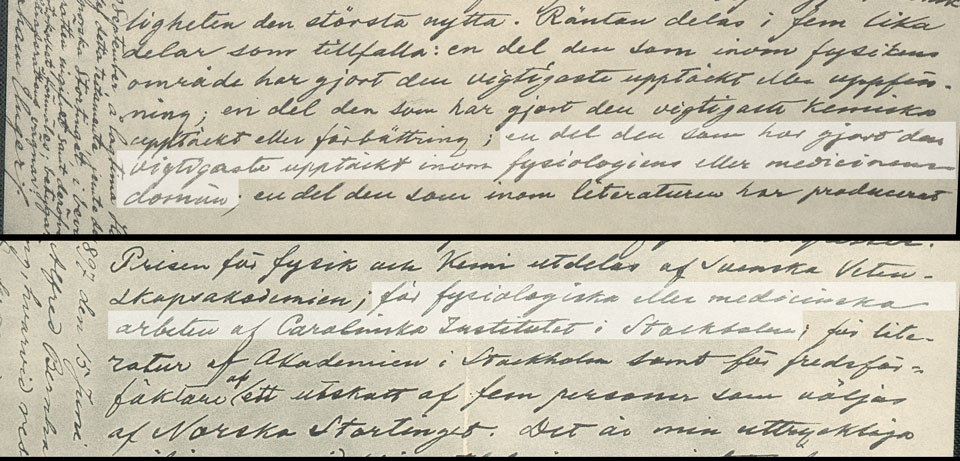 ligheten den största nytta. Räntan delas i fem lika
delar som tillfalla: en del den som inom fysikens
område har gjort den vigtigaste upptäckt eller uppfin-
ning; en del den som har gjort den vigtigaste kemiska
upptäckt eller förbättring; en del den som har gjort den
vigtigaste upptäckt inom fysiologiens eller medicinens
domän; en del den som inom literaturen har producerat
Prisen för fysik och kemi utdelas af Svenska Veten-
skapsakademien; för fysiologiska eller medicinska
arbeten af Carolinska Institutet i Stockholm; för lite-
ratur af Akademien i Stockholm samt för fredsför-
fäktare af ett utskott af fem personer som väljas
af Norska Stortinget. Det är min uttryckliga
897 den 15 Juni
Alfred Bernha
hvarvid med